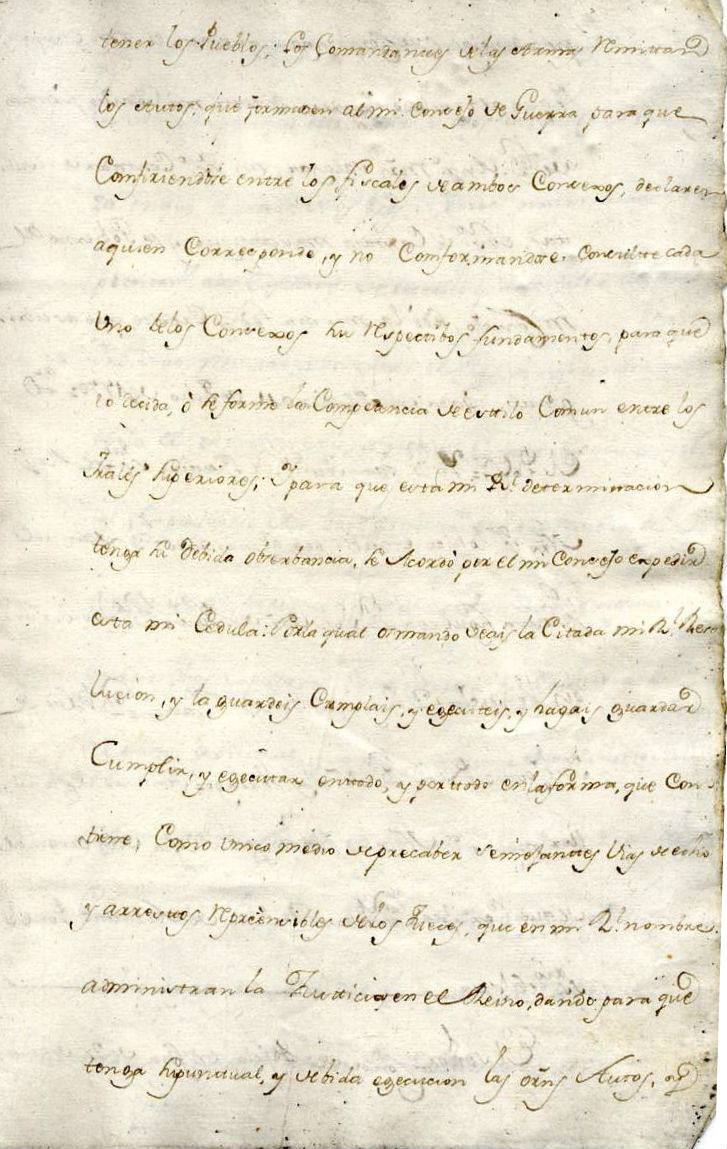 tener los Pueblos: los Comandantes de las Armas Remitan
los Autos, que formaren al mi Consejo de Guerra para que
Confiriendose entre los fiscales de ambos Consexos, declaren
aquien Corresponde, y no Comformandose, Consulte cada
Uno delos Consexos su Respectibos fundamentos, para que
lo decida, ò se forme la Competencia de estilo Comun entre los
Trales superiores; Y para que esta mi Rl. determinacion
tenga su debida obserbancia, se Acordò por el mi Consejo expedir
esta mi Cedula: Porla qual osmando veais la Citada mi Rl. Reso
lucion, y la guardeis Cumplais, y egecuteis, y hagais guardar
Cumplir, y egecutar entodo, y por todo enlaforma, que Con
tiene, Como unico medio de precaber Semejantes Vias de echo
y arrestos Reprèensibles delos Jueces, que en mi Rl. nombre
administran la Justicia en el Reino, dando para que
tenga supuntual, y debida egecucion las orns Autos, y